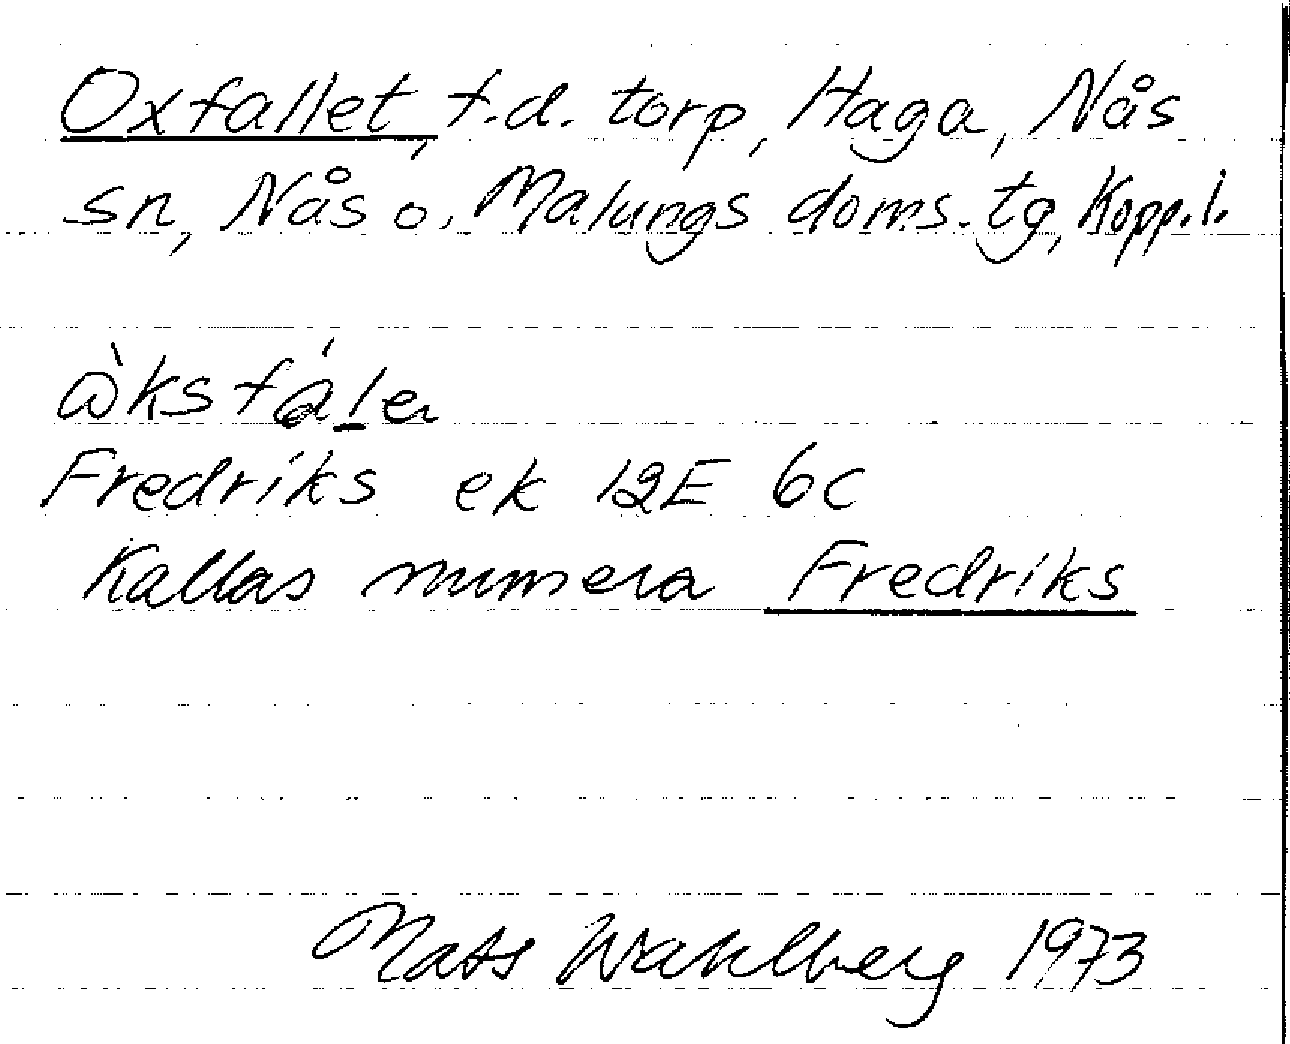 Oxfallet, f.d. torp, Haga, Nås
sn, Nås o. Malungs doms. tg, Kopp.l.
Fredriks ek 12E 6c
Kallas numera Fredriks
Mats Wahlberg 1973